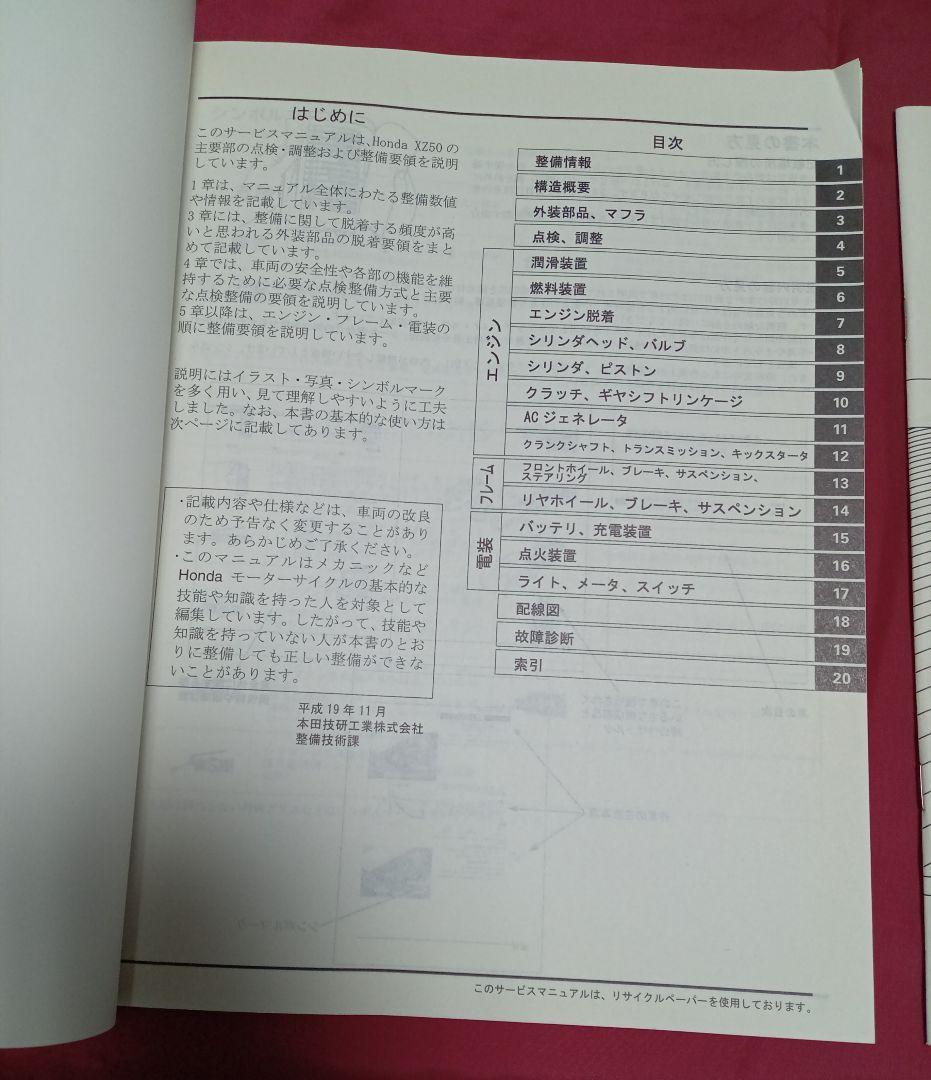 はじめに
このサービスマニュアルは、Honda XZ50の
主要部の点検・調整および整備要領を説明
しています。
1章は、マニュアル全体にわたる整備数値
や情報を記載しています。
3章には、整備に関して脱着する頻度が高
いと思われる外装部品の脱着要領をまと
めて記載しています。
4章では、車両の安全性や各部の機能を維
持するために必要な点検整備方式と主要
な点検整備の要領を説明しています。
5章以降は、エンジン・フレーム・電装の
順に整備要領を説明しています。
説明にはイラスト・写真・シンボルマーク
を多く用い、見て理解しやすいように工夫
しました。なお、本書の基本的な使い方は
次ページに記載してあります。
・記載内容や仕様などは、車両の改良
のため予告なく変更することがあり
ます。あらかじめご了承ください。
・このマニュアルはメカニックなど
Honda モーターサイクルの基本的な
技能や知識を持った人を対象として
編集しています。したがって、技能や
知識を持っていない人が本書のとお
りに整備しても正しい整備ができな
いことがあります。
平成19年11月
本田技研工業株式会社
整備技術課
目次
整備情報 1
構造概要 2
外装部品、マフラ 3
点検、調整 4
エンジン
潤滑装置 5
燃料装置 6
エンジン脱着 7
シリンダヘッド、バルブ 8
シリンダ、ピストン 9
クラッチ、ギヤシフトリンケージ 10
ACジェネレータ 11
クランクシャフト、トランスミッション、キックスタータ 12
フレーム
フロントホイール、ブレーキ、サスペンション、
ステアリング 13
リヤホイール、ブレーキ、サスペンション 14
電装
バッテリ、充電装置 15
点火装置 16
ライト、メータ、スイッチ 17
配線図 18
故障診断 19
索引 20
このサービスマニュアルは、リサイクルペーパーを使用しております。